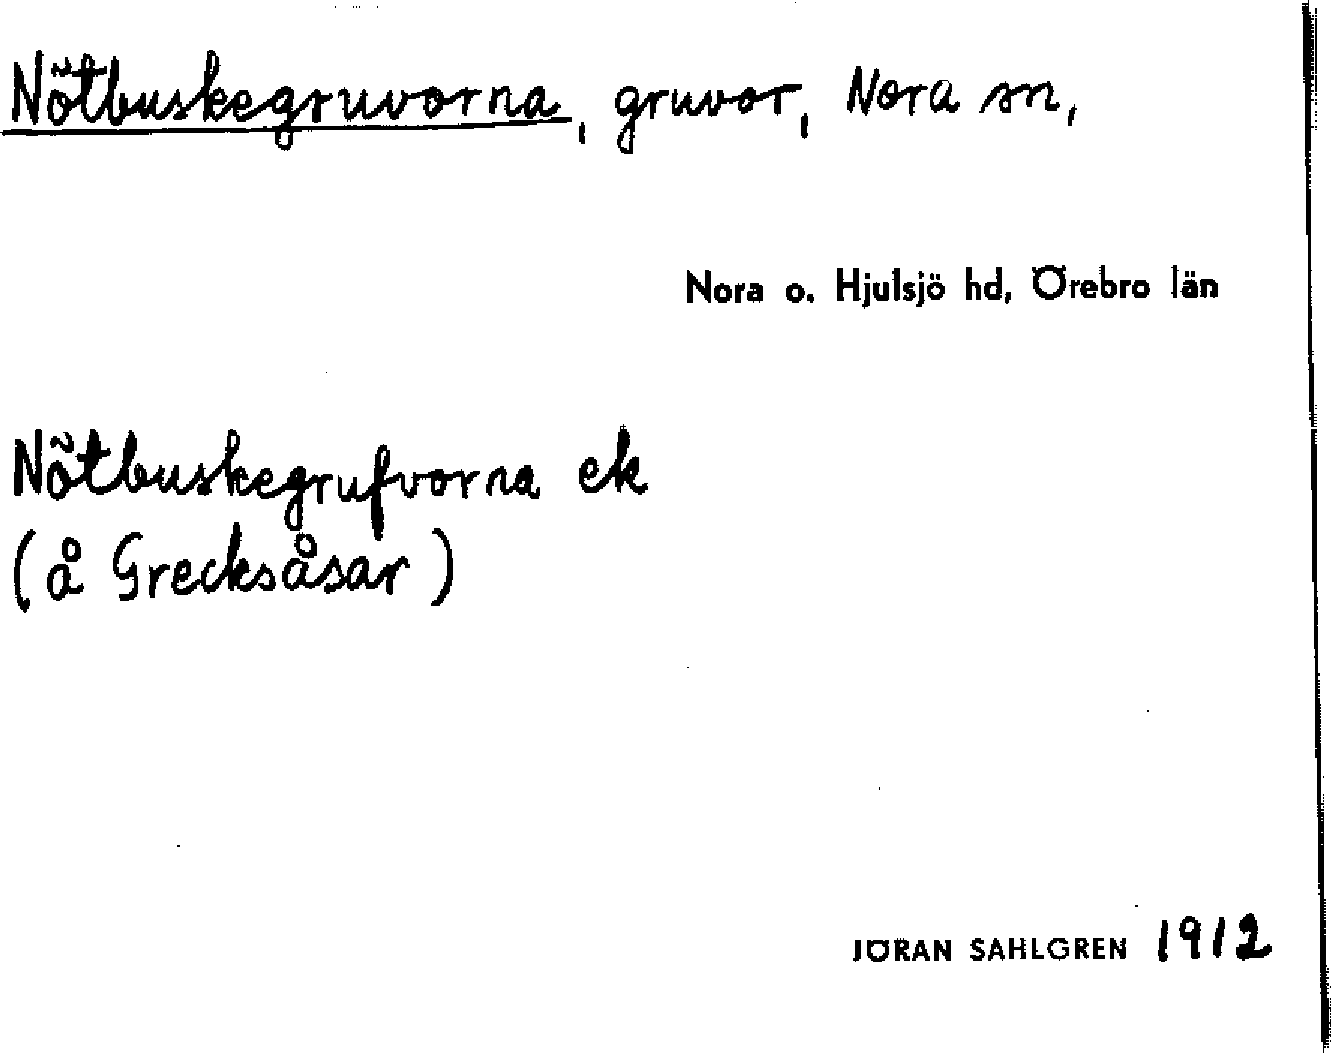 Nötbuskegruvorna, gruvor, Nora sn,
Nora o. Hjulsjö hd, Örebro län
Nötbuskegrufvorna ek
(å Grecksåsar)
JÖRAN SAHLGREN 1912